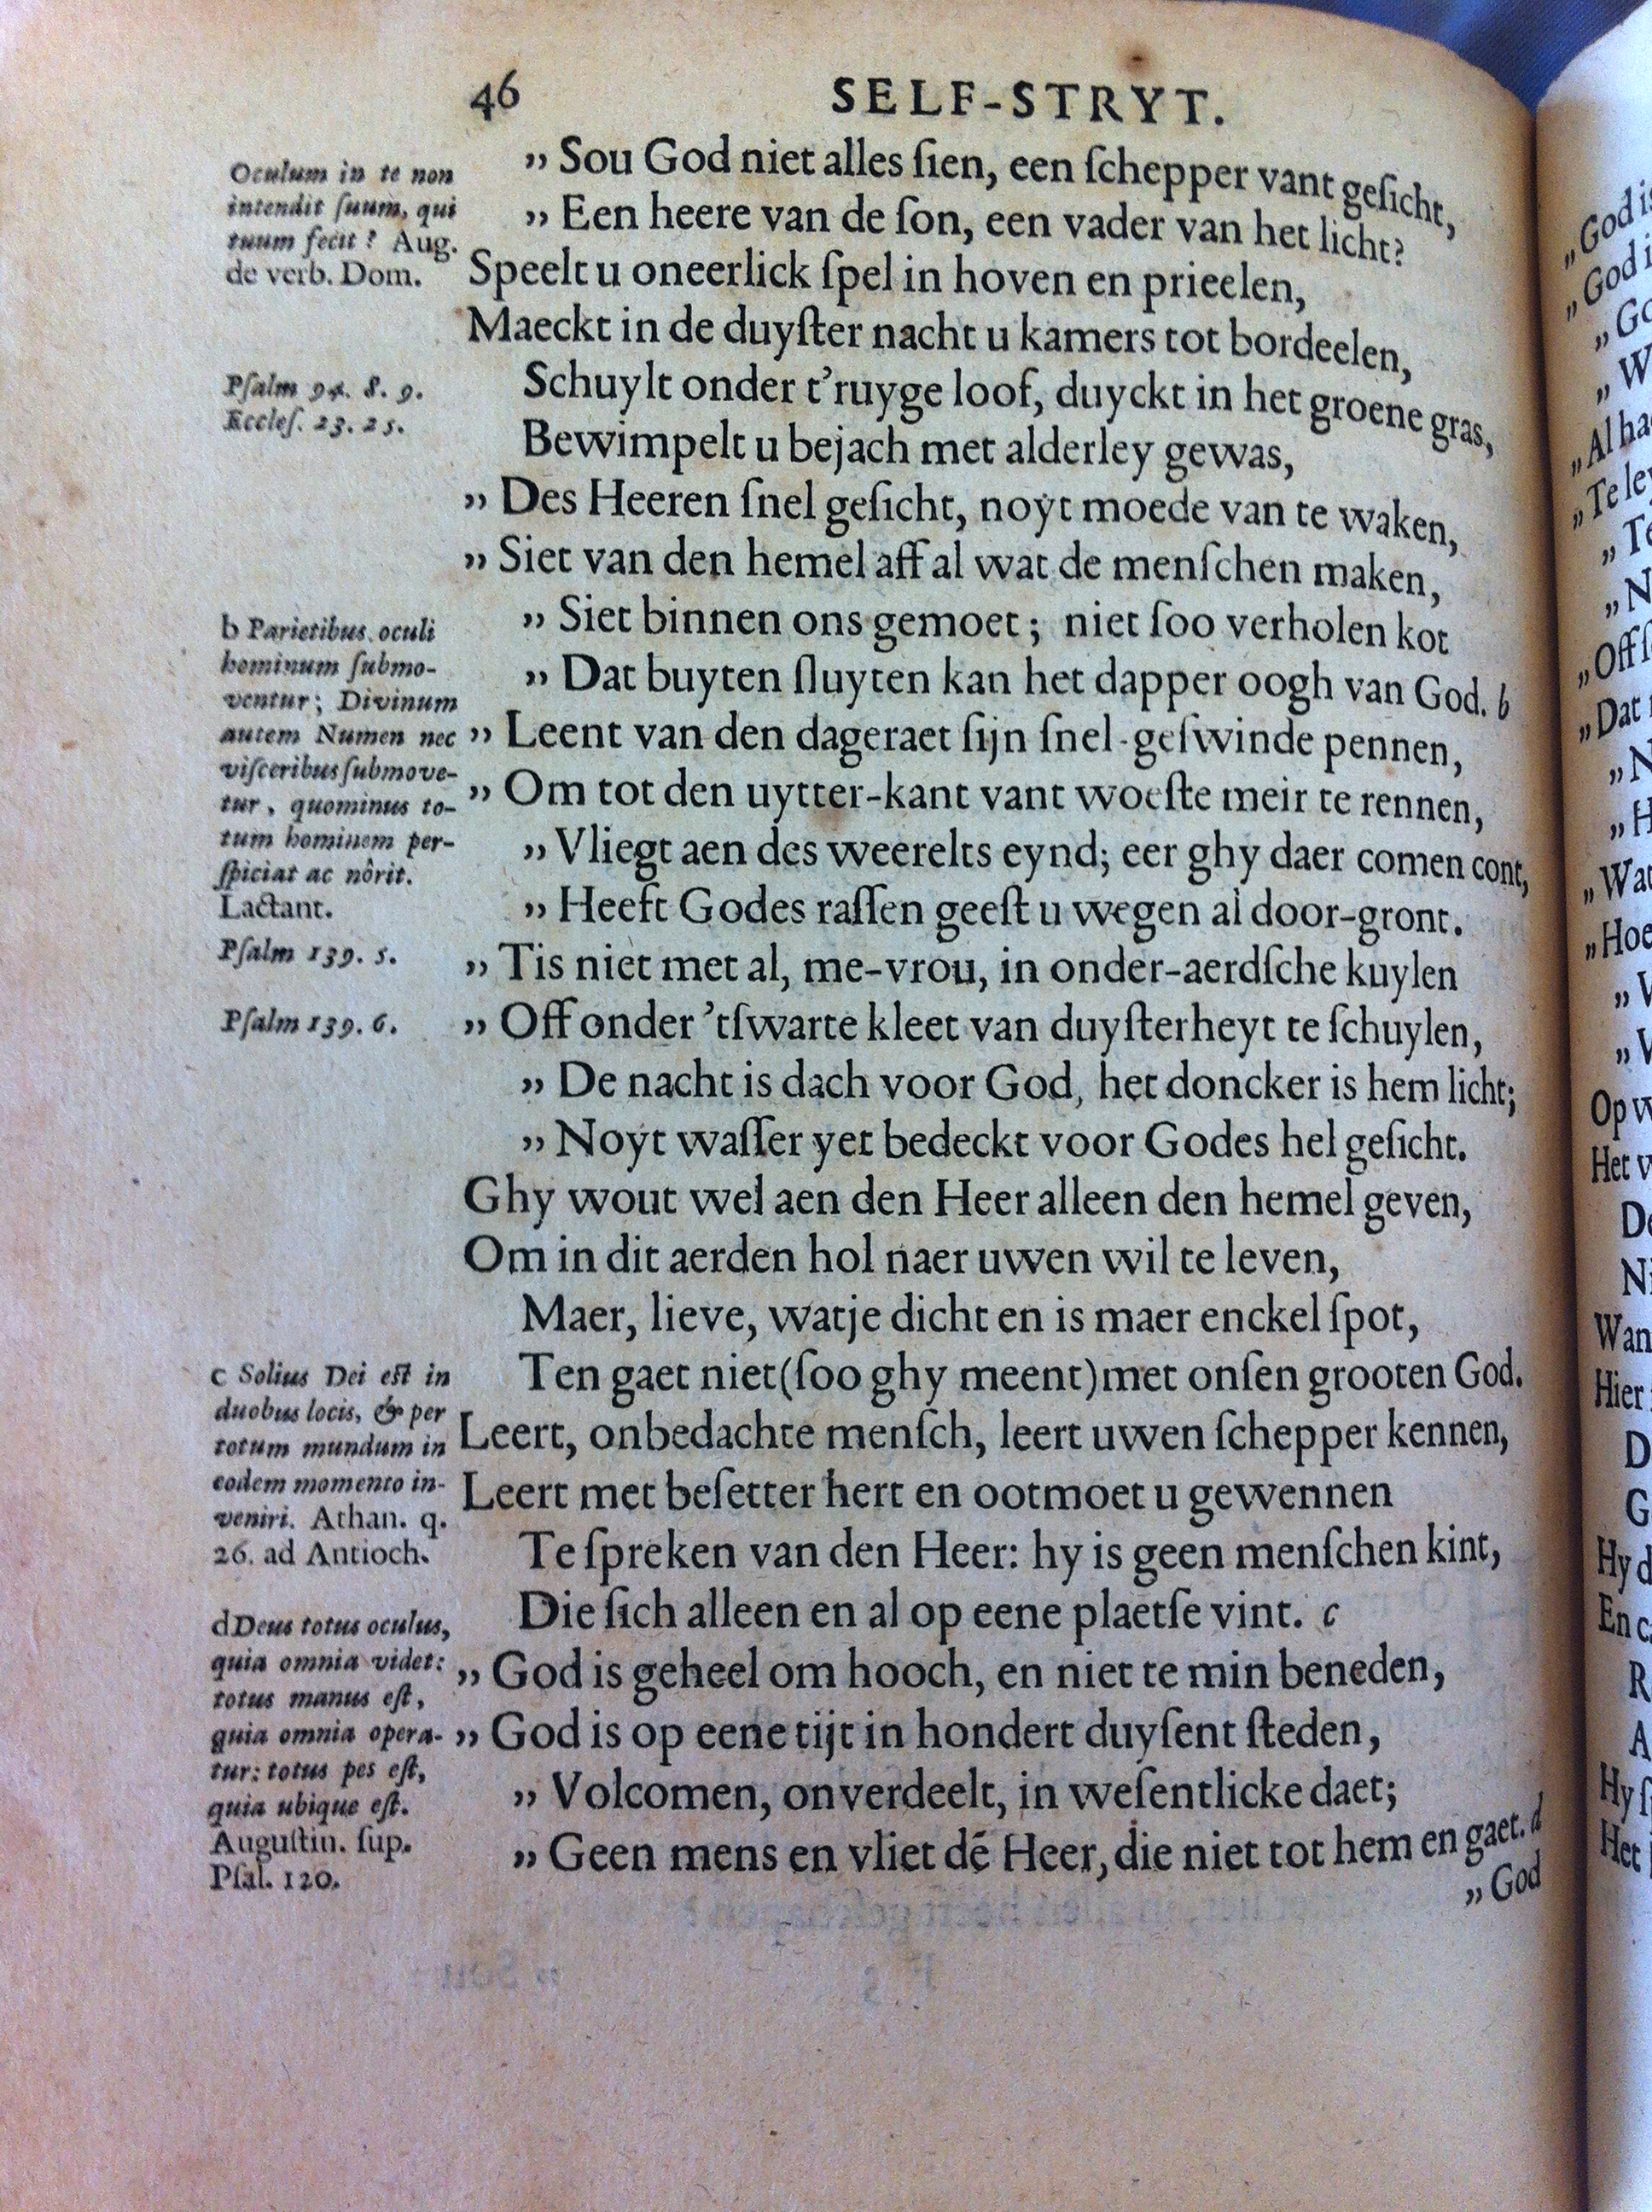 46 SELF-STRYT.
„ Sou God niet alles ſien, een ſchepper vant geſicht,
„ Een heere van de ſon, een vader van het licht?
Speelt u oneerlick ſpel in hoven en prieelen,
Maeckt in de duyſter nacht u kamers tot bordeelen,
Schuylt onder t'ruyge loof, duyckt in het groene gras,
Bewimpelt u bejach met alderley gewas,
„ Des Heeren ſnel geſicht, noyt moede van te waken,
„ Siet van den hemel aff al wat de menſchen maken,
„ Siet binnen ons gemoet; niet ſoo verholen kot
„ Dat buyten ſluyten kan het dapper oogh van God. b
„ Leent van den dageraet ſijn ſnel-geſwinde pennen,
„ Om tot den uytter-kant vant woeſte meir te rennen,
„ Vliegt aen des weerelts eynd; eer ghy daer comen cont,
„ Heeft Godes raſſen geeſt u wegen al door-gront.
„ Tis niet met al, me-vrou, in onder-aerdſche kuylen
„ Off onder 'tſwarte kleet van duyſterheyt te ſchuylen,
„ De nacht is dach voor God, het doncker is hem licht;
„ Noyt waſſer yet bedeckt voor Godes hel geſicht.
Ghy wout wel aen den Heer alleen den hemel geven,
Om in dit aerden hol naer uwen wil te leven,
Maer, lieve, watje dicht en is maer enckel ſpot,
Ten gaet niet (ſoo ghy meent) met onſen grooten God.
Leert, onbedachte menſch, leert uwen ſchepper kennen,
Leert met beſetter hert en ootmoet u gewennen
Te ſpreken van den Heer: hy is geen menſchen kint,
Die ſich alleen en al op eene plaetſe vint. c
„ God is geheel om hooch, en niet te min beneden,
„ God is op eene tijt in hondert duyſent ſteden,
„ Volcomen, onverdeelt, in weſentlicke daet;
„ Geen mens en vliet dē Heer, die niet tot hem en gaet. d
„ God
Oculum in te non
intendit ſuum, qui
tuum fecit? Aug.
de verb. Dom.
Pſalm 94. 8. 9.
Eccleſ. 23. 25.
b Parietibus oculi
hominum ſubmo-
ventur; Divinum
autem Numen nec
viſceribus ſubmove-
tur, quominus to-
tum hominem per-
ſpiciat ac nôrit.
Lactant.
Pſalm 139. 5.
Pſalm 139. 6.
c Solius Dei eſt in
duobus locis, & per
totum mundum in
eodem momento in-
veniri. Athan. q.
26. ad Antioch.
d Deus totus oculus,
quia omnia videt:
totus manus eſt,
quia omnia opera-
tur: totus pes eſt,
quia ubique eſt.
Auguſtin. ſup.
Pſal. 120.